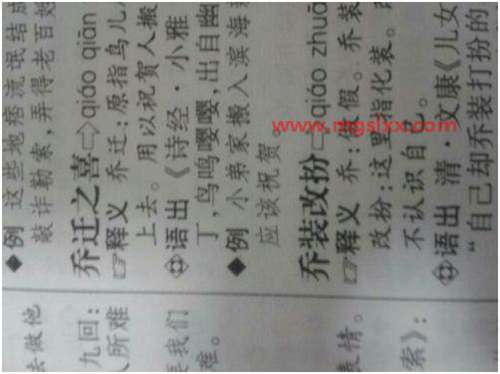 例 这些地痞流氓结成
敲诈勒索,弄得老百姓
乔迁之喜 qiáo qiān
释义 乔迁:原指鸟儿
上去。用以祝贺人搬
语出 《诗经·小雅
丁,鸟鸣嘤嘤,出自幽
例 小弟家搬入滨海
应该祝贺
乔装改扮 qiáo zhuā
释义 乔:假。乔装
改扮:这里指化装。
不认识自
语出 清·文康《儿女
“自己却乔装打扮的
去做他
九回:
人所难
我们
难。
表情。
索》:
www.mgslxx.com